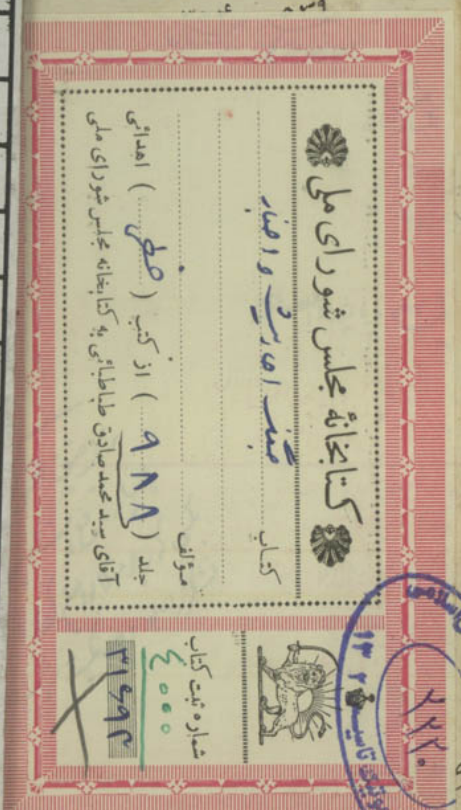 کتابخانهٔ مجلس شورای ملی
کتاب
احادیث و اخبار
مؤلف
جلد (۹۸۸) از کتب (خطی) اهدائی
آقای سید محمد صادق طباطبائی به کتابخانه مجلس شورای ملی
شماره ثبت کتاب
۴۰۰۰
۳۱۶۹۲